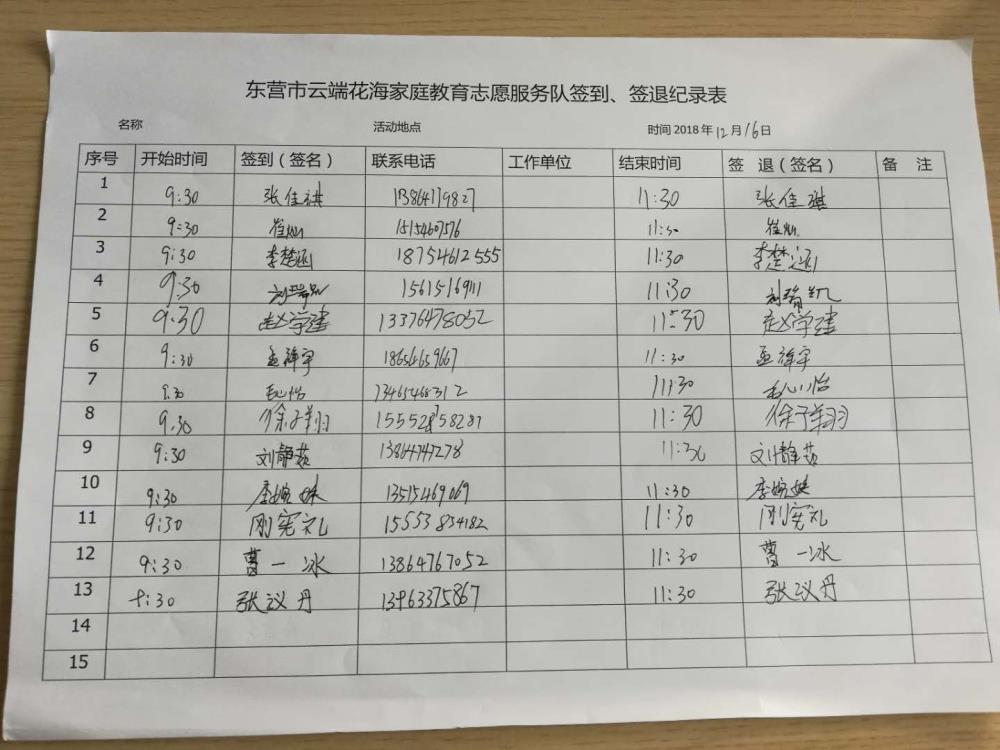 东营市云端花海家庭教育志愿服务队签到、签退纪录表
名称 活动地点 时间 2018 年 12 月 16 日
序号 开始时间 签到（签名） 联系电话 工作单位 结束时间 签 退（签名） 备 注
1 9:30 张佳祺 13864179827 11:30 张佳祺
2 9:30 崔灿 15154607576 11:30 崔灿
3 9:30 李楚涵 18754612555 11:30 李楚涵
4 9:30 刘瑞凯 15615169111 11:30 刘瑞凯
5 9:30 赵学建 13376478052 11:30 赵学建
6 9:30 孟祥宇 18654659667 11:30 孟祥宇
7 9:30 毛心怡 13465468312 11:30 毛心怡
8 9:30 徐子翔 11:30 徐子翔
9 9:30 刘静茹 13864747278 11:30 刘静茹
10 9:30 李婉姝 13515469069 11:30 李婉姝
11 9:30 刚宪礼 15553834182 11:30 刚宪礼
12 9:30 曹一冰 13864767052 11:30 曹一冰
13 9:30 张议丹 13963375867 11:30 张议丹
14
15